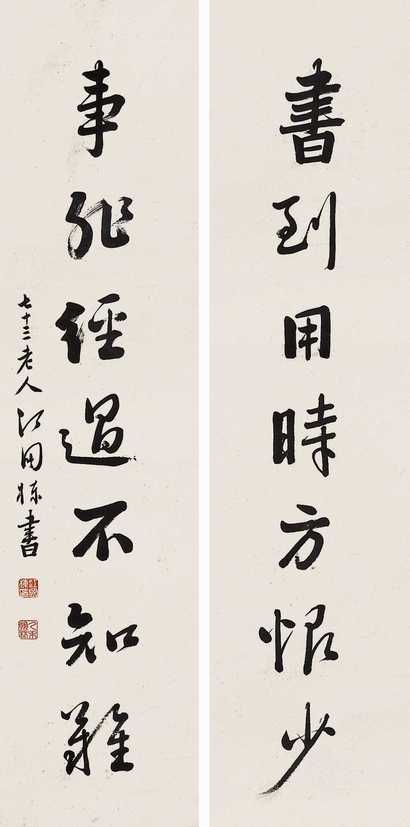 書到用時方恨少
事非經過不知難
七十三老人江田棟書